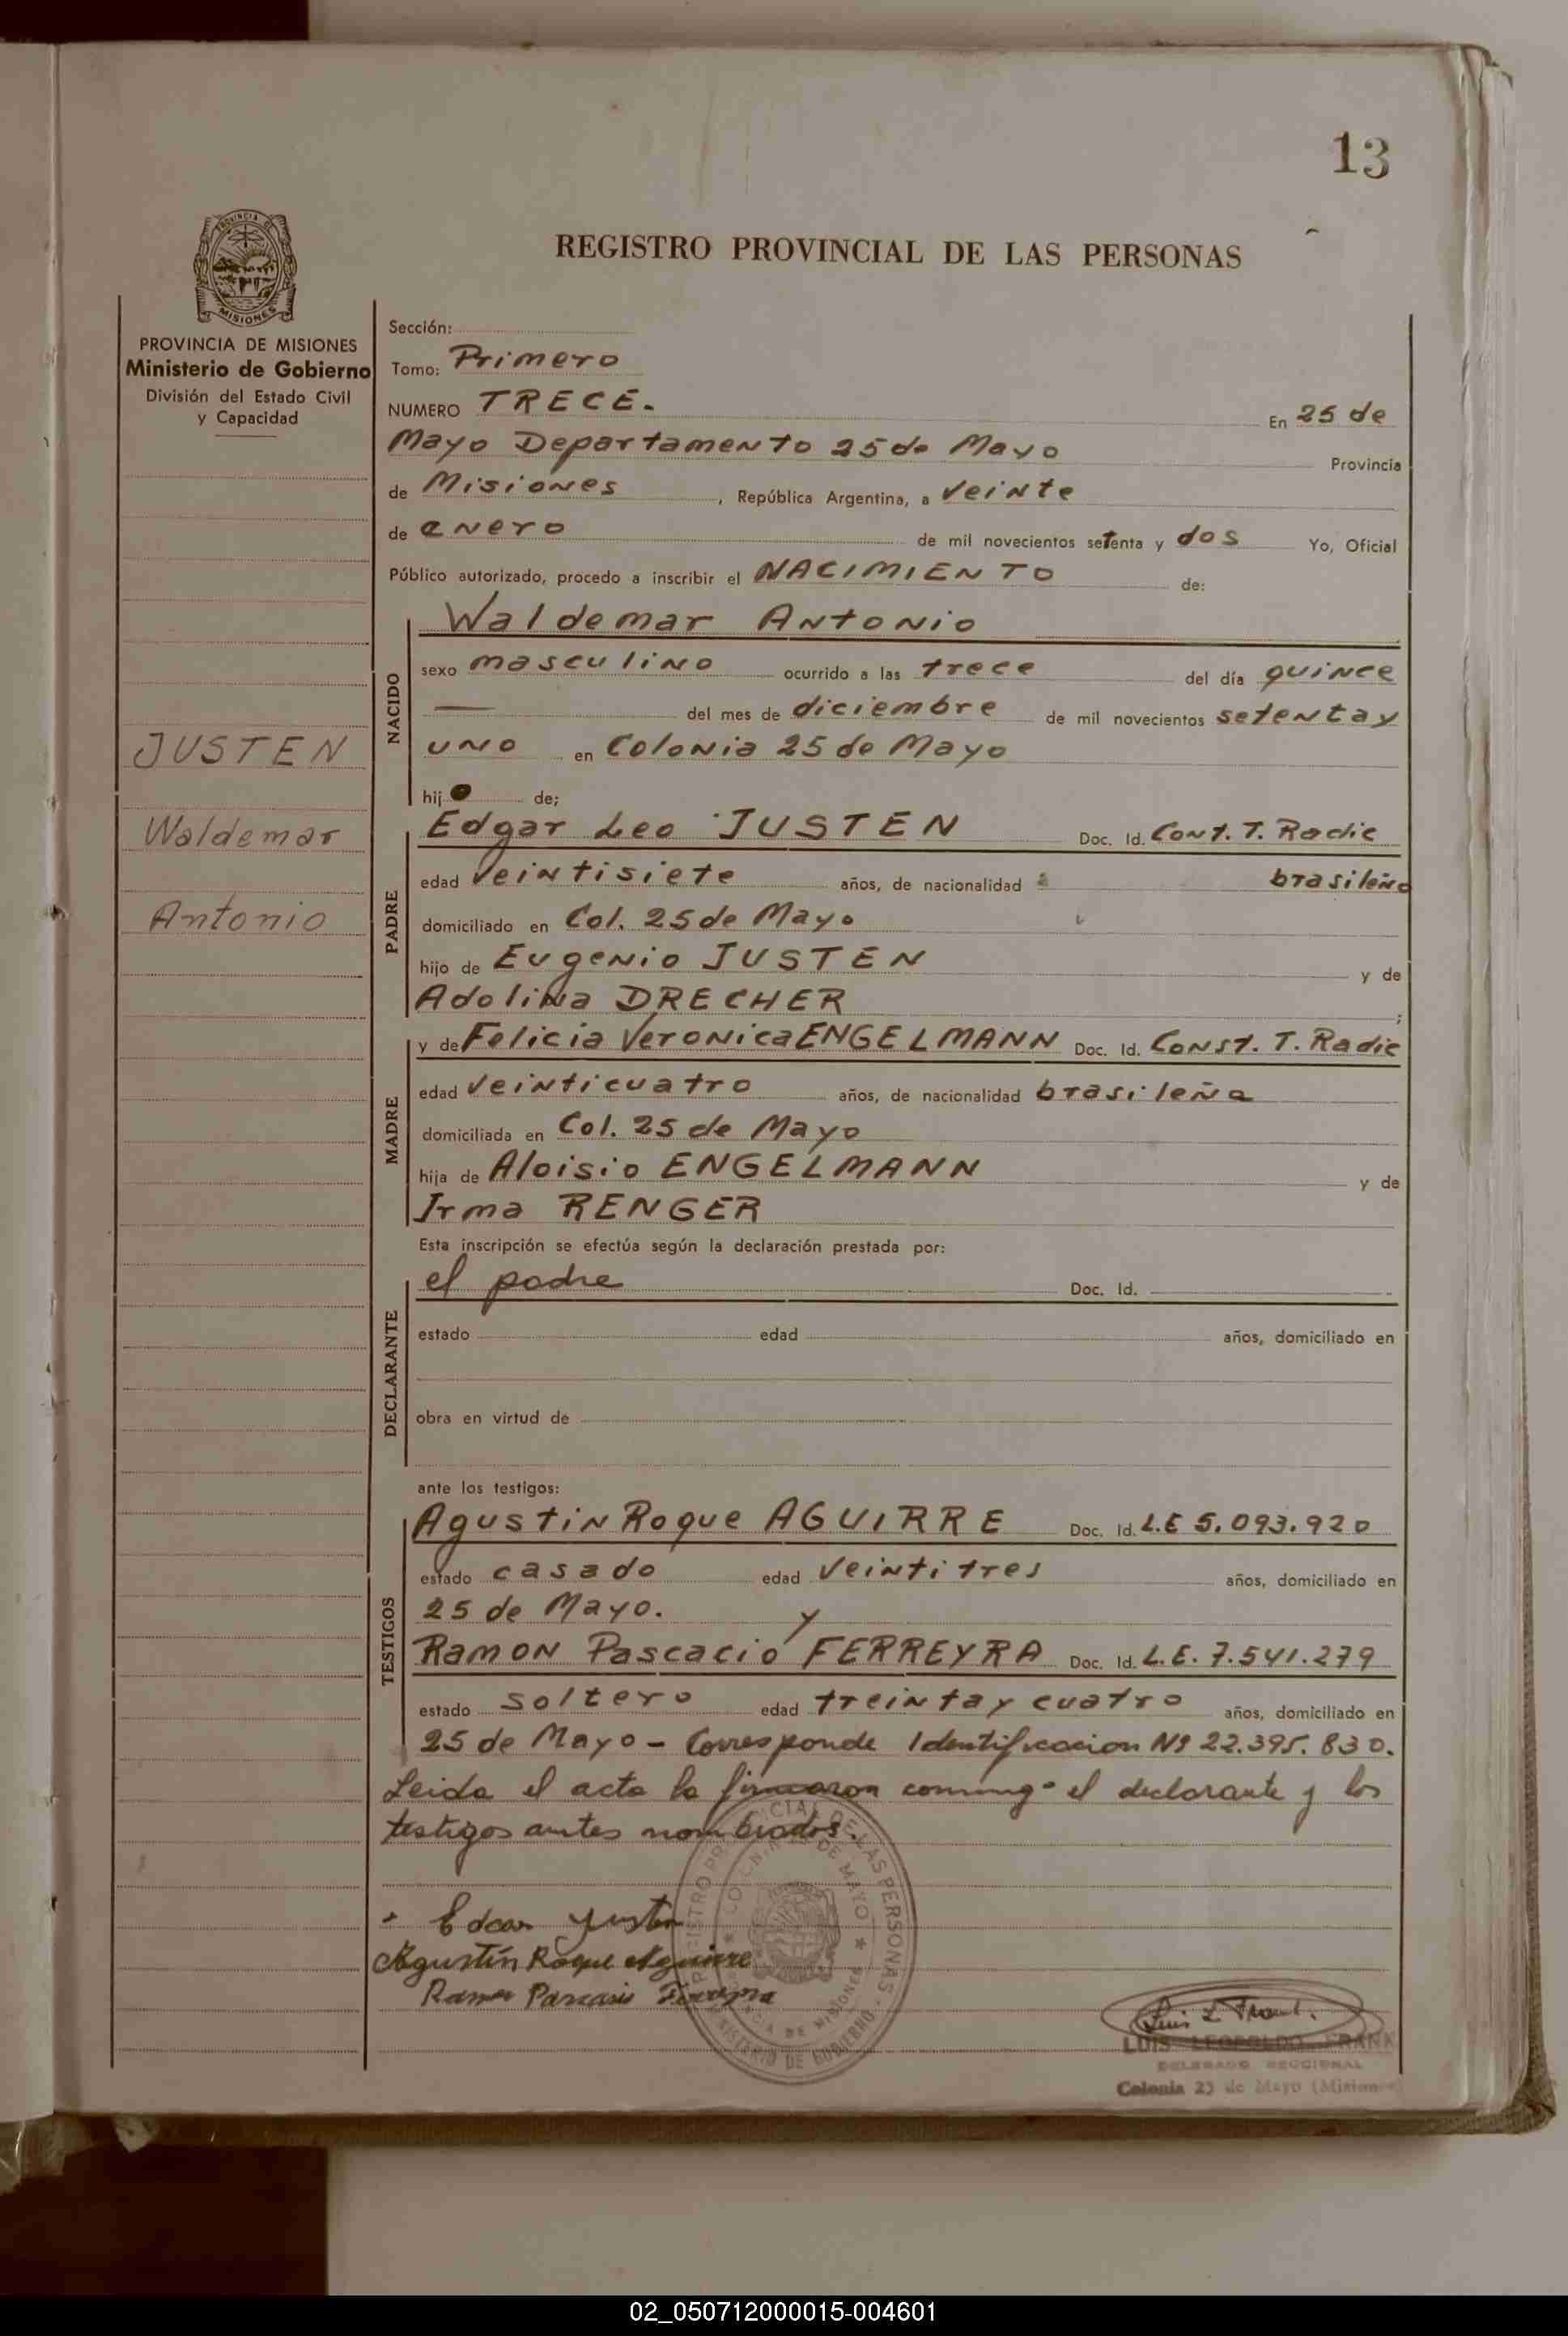 13
REGISTRO PROVINCIAL DE LAS PERSONAS
PROVINCIA DE MISIONES
Ministerio de Gobierno
División del Estado Civil
y Capacidad
JUSTEN
Waldemar
Antonio
Sección:
Tomo: Primero
NUMERO TRECE. En 25 de
Mayo Departamento 25 de Mayo Provincia
de Misiones, República Argentina, a veinte
de enero de mil novecientos setenta y dos Yo, Oficial
Público autorizado, procedo a inscribir el NACIMIENTO de:
NACIDO
Waldemar Antonio
sexo masculino ocurrido a las trece del día quince
— del mes de diciembre de mil novecientos setenta y
uno en Colonia 25 de Mayo
hijo de;
PADRE
Edgar Leo JUSTEN Doc. Id. Cont. T. Radic
edad veintisiete años, de nacionalidad brasileño
domiciliado en Col. 25 de Mayo
hijo de Eugenio JUSTEN y de
Adolina DRECHER;
MADRE
y de Felicia Veronica ENGELMANN Doc. Id. Const. T. Radic
edad veinticuatro años, de nacionalidad brasileña
domiciliada en Col. 25 de Mayo
hija de Aloisio ENGELMANN y de
Irma RENGER
Esta inscripción se efectúa según la declaración prestada por:
DECLARANTE
el padre Doc. Id.
estado edad años, domiciliado en
obra en virtud de
ante los testigos:
TESTIGOS
Agustin Roque AGUIRRE Doc. Id. L.E 5.093.920
estado casado edad veintitres años, domiciliado en
25 de Mayo. y
Ramon Pascacio FERREYRA Doc. Id. L.E. 7.541.279
estado soltero edad treinta y cuatro años, domiciliado en
25 de Mayo - Corresponde Identificacion Nº 22.395.830.
Leida el acta la firmaron conmigo el declarante y los
testigos antes nombrados.
Edgar Justen
Agustín Roque Aguirre
Ramon Pascacio Ferreyra
Luis L Frank.
LUIS LEOPOLDO FRANK
DELEGADO SECCIONAL
Colonia 25 de Mayo (Misiones)
02_050712000015-004601